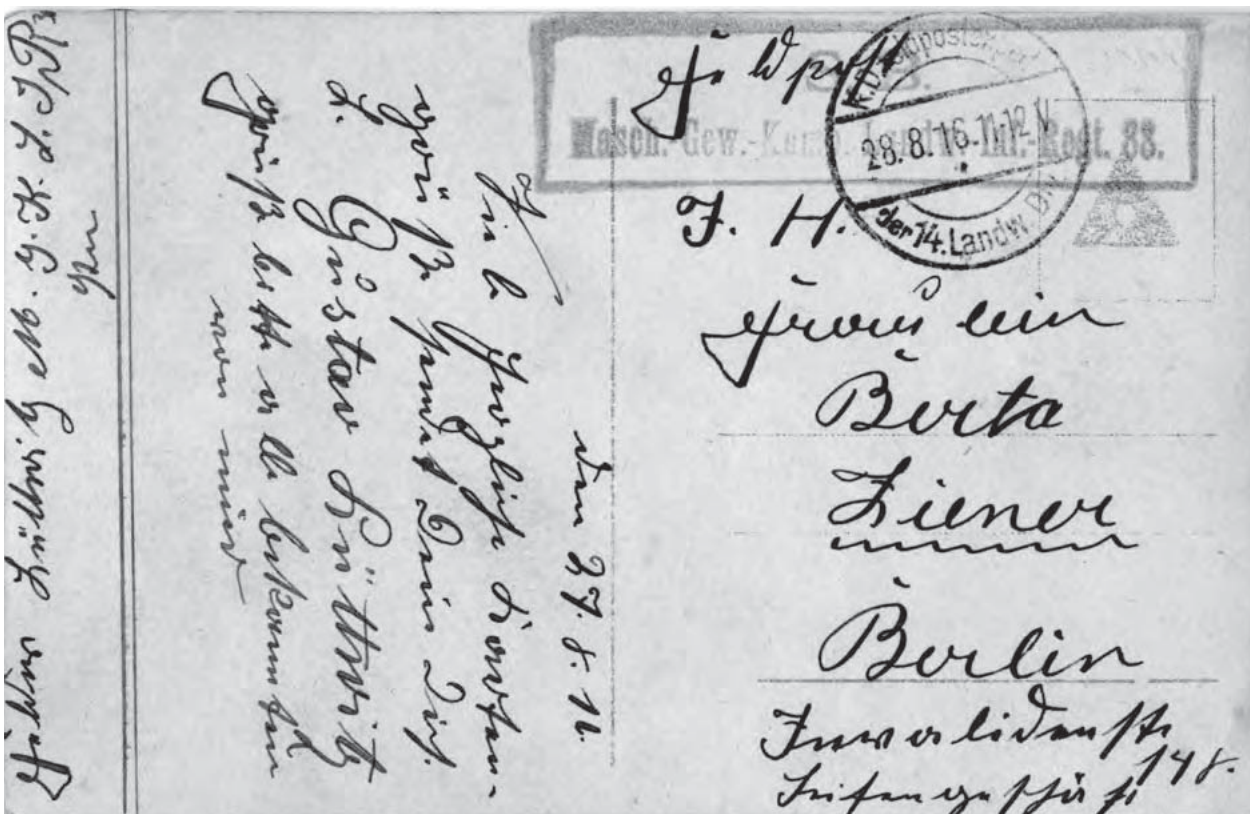 Feldpost
S. B.
Masch.-Gew.-Komp. Landw.-Inf.-Regt.
28.8.16.11-12 V
der 14. Landw. Div
J. H.
Fräulein
Berta
Ziener
Berlin
Invalidenstr
148.
Seifengeschäft
den 27. 8. 16.
Viele herzliche Karten-
grüße sendet Dein Dir.
L. Gustav Lüttwitz
Grüß bitte alle bekannten
von mir
Lüttwitz M. G. K. L. I. R